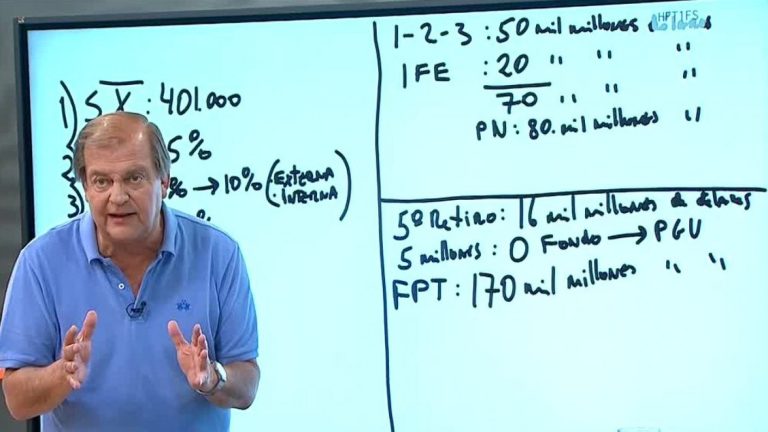 1) S X : 401.000
2) 5%
3) % → 10% (EXTERNA
. INTERNA)
%
1-2-3 : 50 mil millones
HPT1FS
IFE : 20 " " "
70 " " "
PN : 80. mil millones "
5º Retiro : 16 mil millones de dólares
5 millones : 0 Fondo → PGU
FPT : 170 mil millones " "